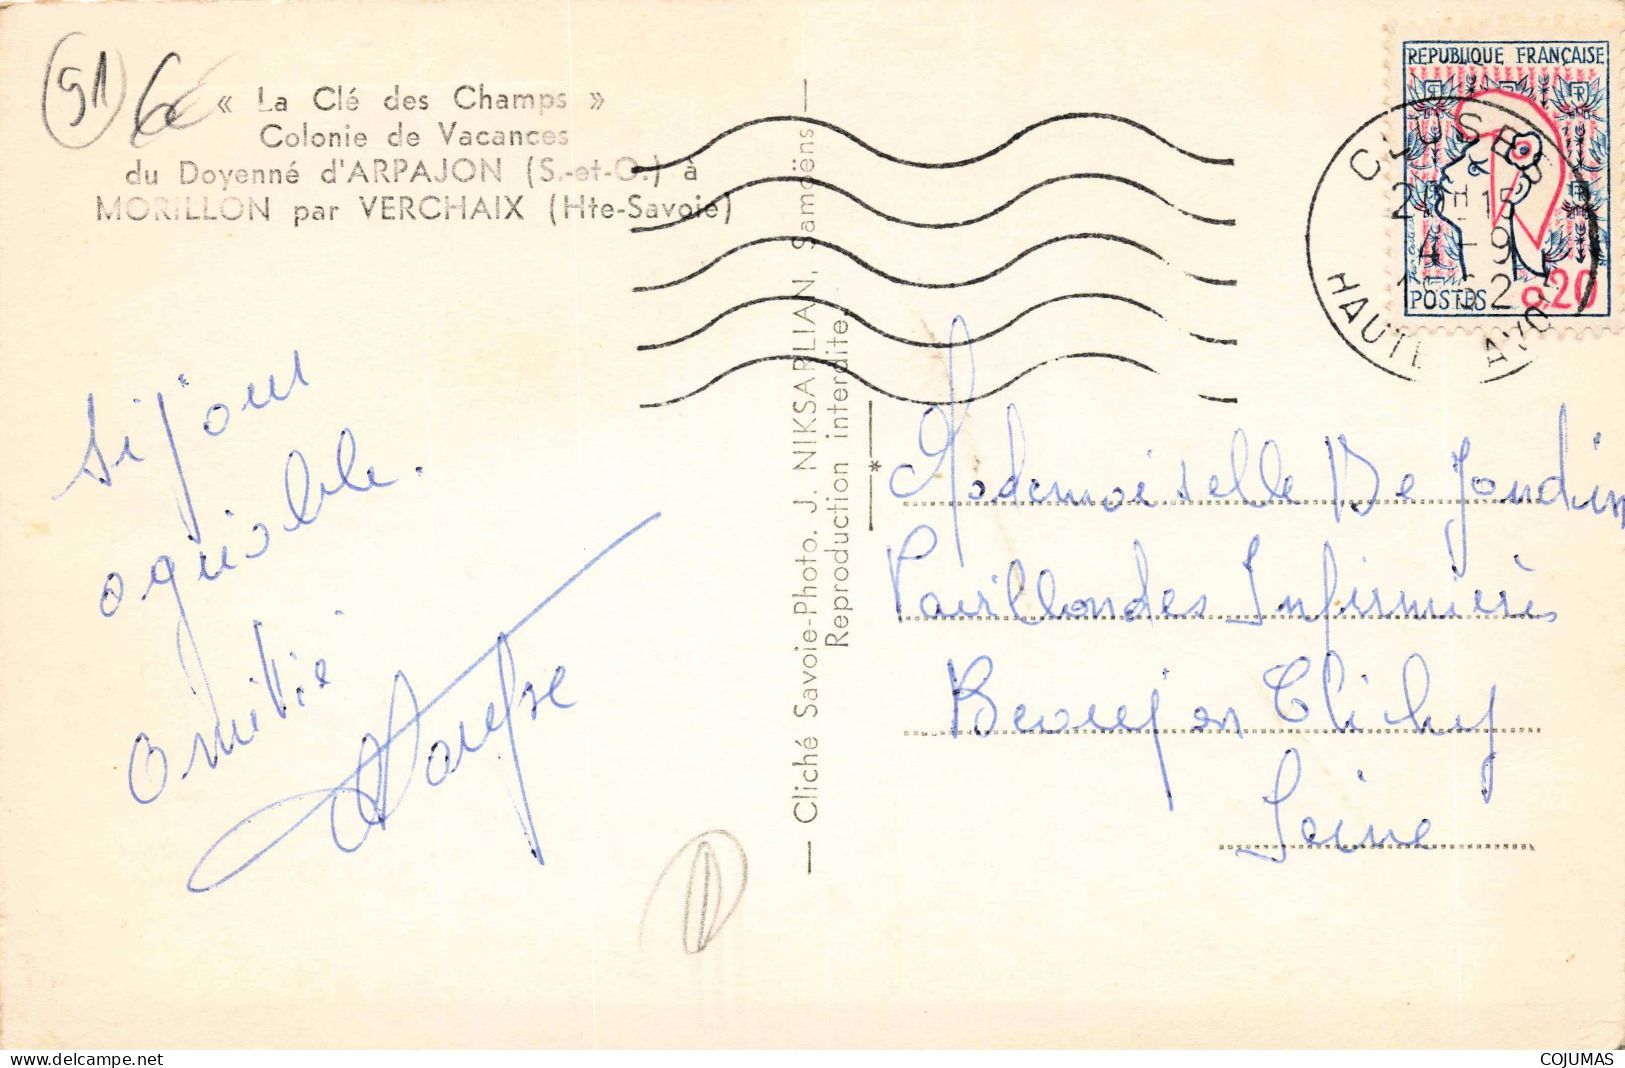 91 6€
« La Clé des Champs »
Colonie de Vacances
du Doyenné d'ARPAJON (S.-et-O.) à
MORILLON par VERCHAIX (Hte-Savoie)
REPUBLIQUE FRANÇAISE
POSTES 0.20
CLUSES
20H15
4-9
1962
HAUTE SAVOIE
Séjour
agréable.
Amitié
— Cliché Savoie-Photo. J. NIKSARLIAN, Samoëns —
Reproduction interdite.
*
Mademoiselle De Jondin
Pavillon des Infirmières
Beaujon Clichy
Seine
delcampe.net
COJUMAS